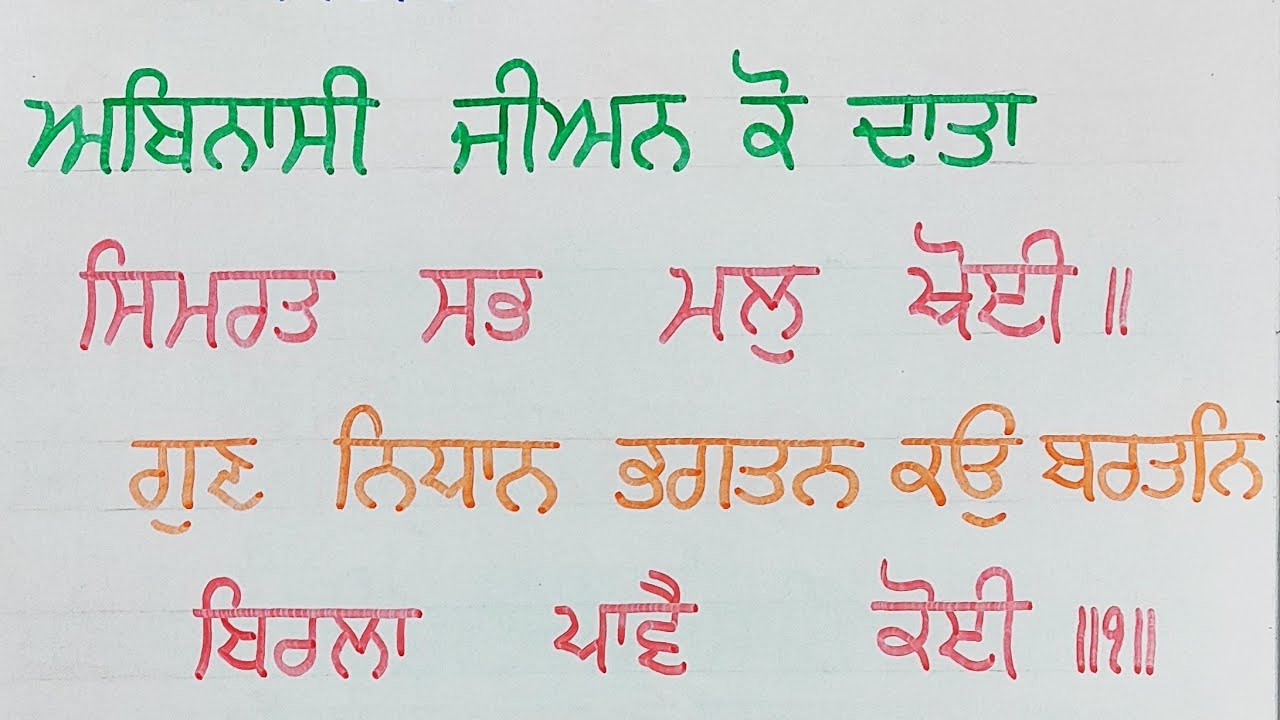 ਅਬਿਨਾਸੀ ਜੀਅਨ ਕੋ ਦਾਤਾ
ਸਿਮਰਤ ਸਭ ਮਲੁ ਖੋਈ ॥
ਗੁਣ ਨਿਧਾਨ ਭਗਤਨ ਕਉ ਬਰਤਨਿ
ਬਿਰਲਾ ਪਾਵੈ ਕੋਈ ॥੧॥